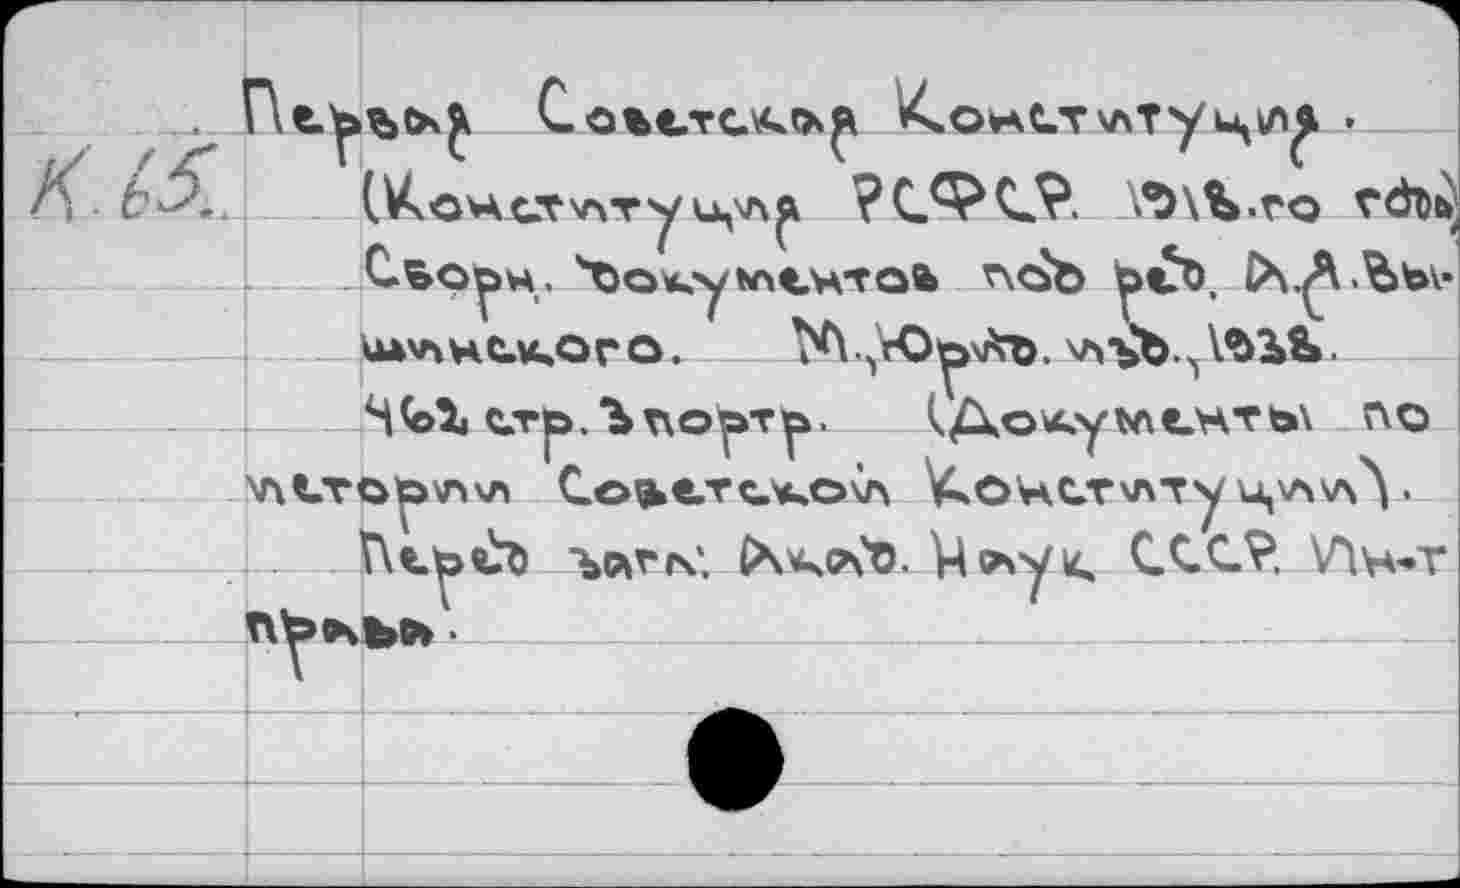 Первая Советская Конституция.
К.65. (Конституция РСФСР. 1918-го года)
Сборн. документов под ред. А.Я.Вы-
шинского. М.,Юр.изд.,1938.
462 стр. 3 портр. (Документы по
истории Советской Конституции).
Перед загл: Акад. Наук СССР. Ин-т
права.